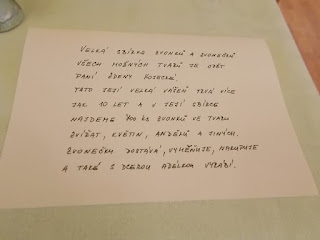 VELKÁ SBÍRKA ZVONKŮ A ZVONEČKŮ
VŠECH MOŽNÝCH TVARŮ JE OPĚT
PANÍ ZDENY
TATO JEJÍ VELKÁ VÁŠEŇ TRVÁ VÍCE
JAK 10 LET A V JEJÍ SBÍRCE
NAJDEME 400 KS ZVONKŮ VE TVARU
ZVÍŘAT, KVĚTIN, ANDĚLŮ A JINÝCH.
ZVONEČKY DOSTÁVÁ, VYMĚŇUJE, NAKUPUJE
A TAKÉ S DCEROU ADÉLKOU VYRÁBÍ.